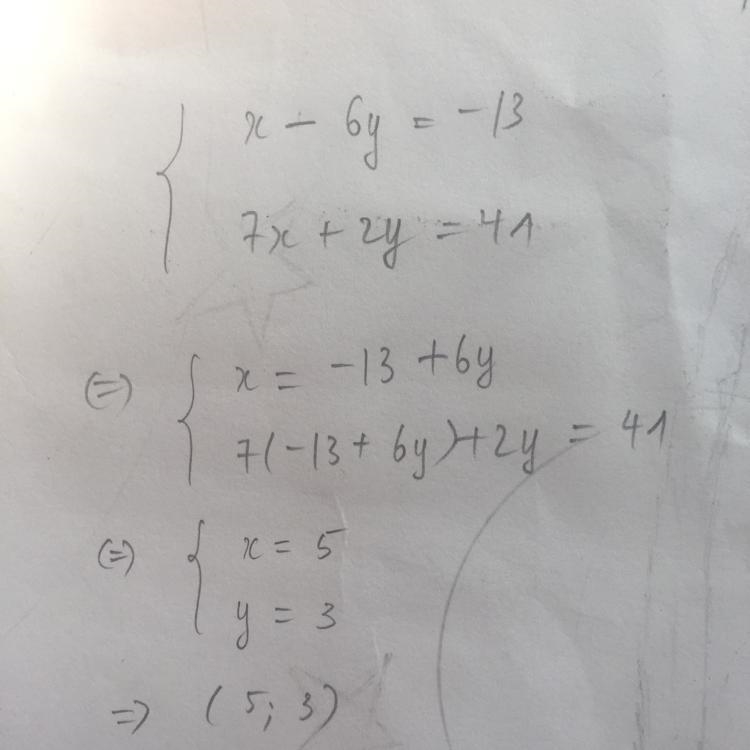 x - 6y = -13
7x + 2y = 41
(=) x = -13 + 6y
7(-13 + 6y) + 2y = 41
(=) x = 5
y = 3
=> (5; 3)